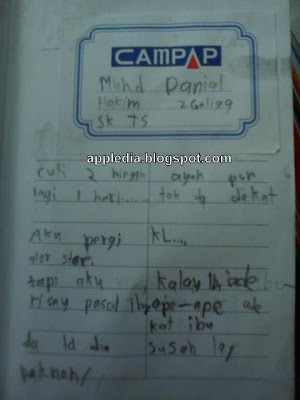 CAMPAP
Muhd Danial
Hakim 2 Geligg
SK TS
appledia.blogspot.com
cuti 2 minggu ayah pun
lagi 1 hari.... tak dekat
Aku pergi KL....
tapi aku kalau
risau pasal ibu ape-ape
kat ibu
da la dia susah